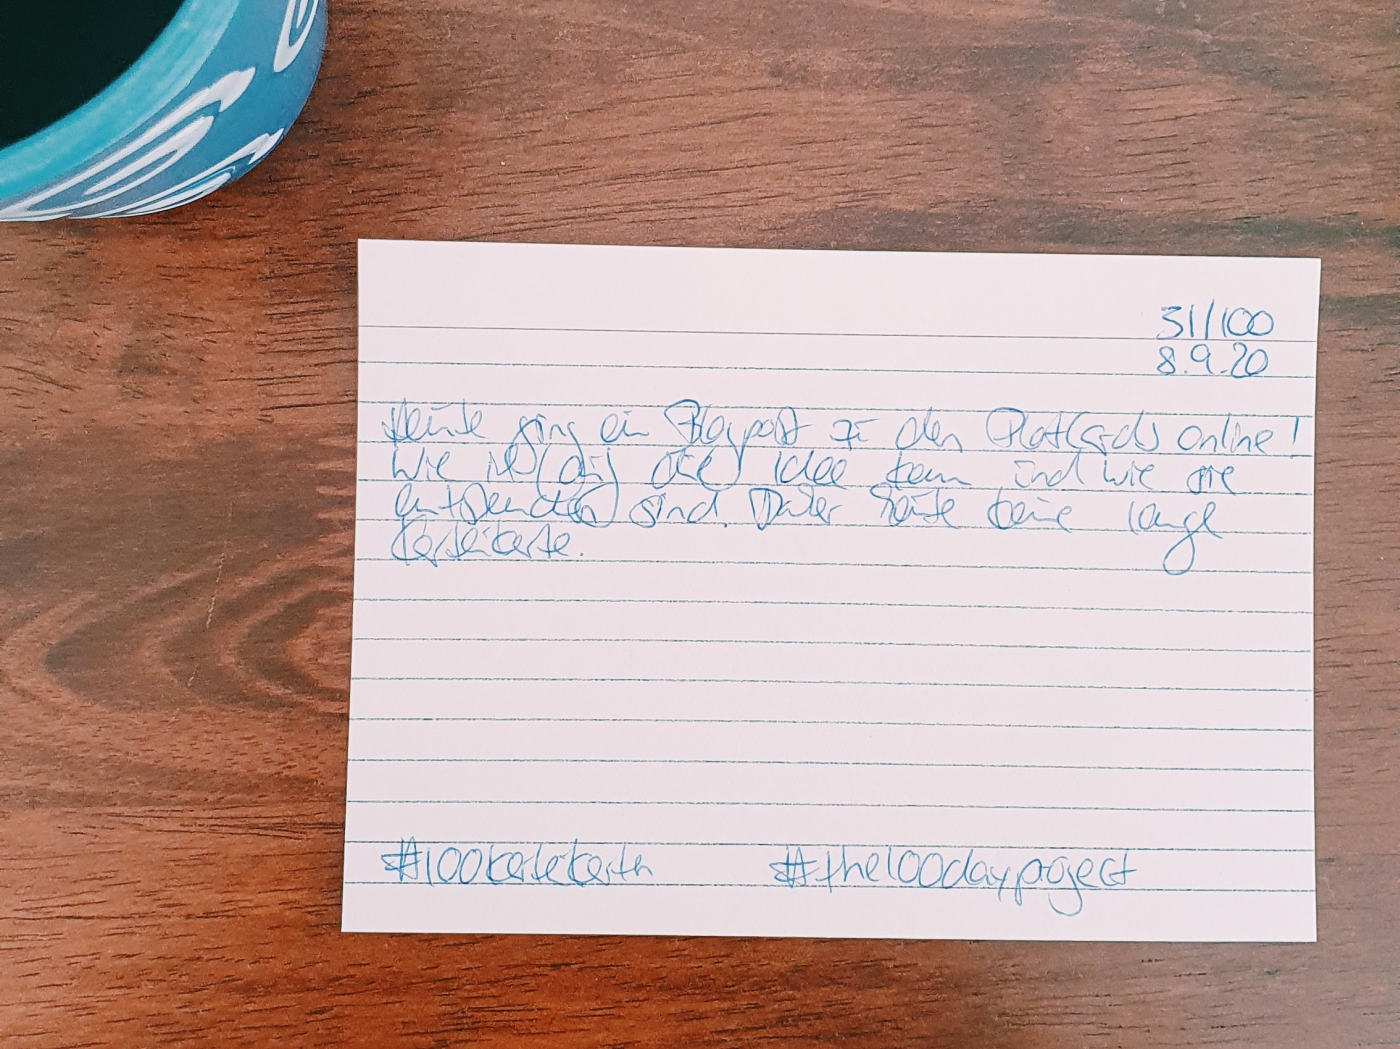 31/100
8.9.20
Heute ging ein Blogpost zu den PlotCards online!
Wie ich auf die Idee kam und wie sie
entstanden sind. Daher heute keine lange
#the100dayproject